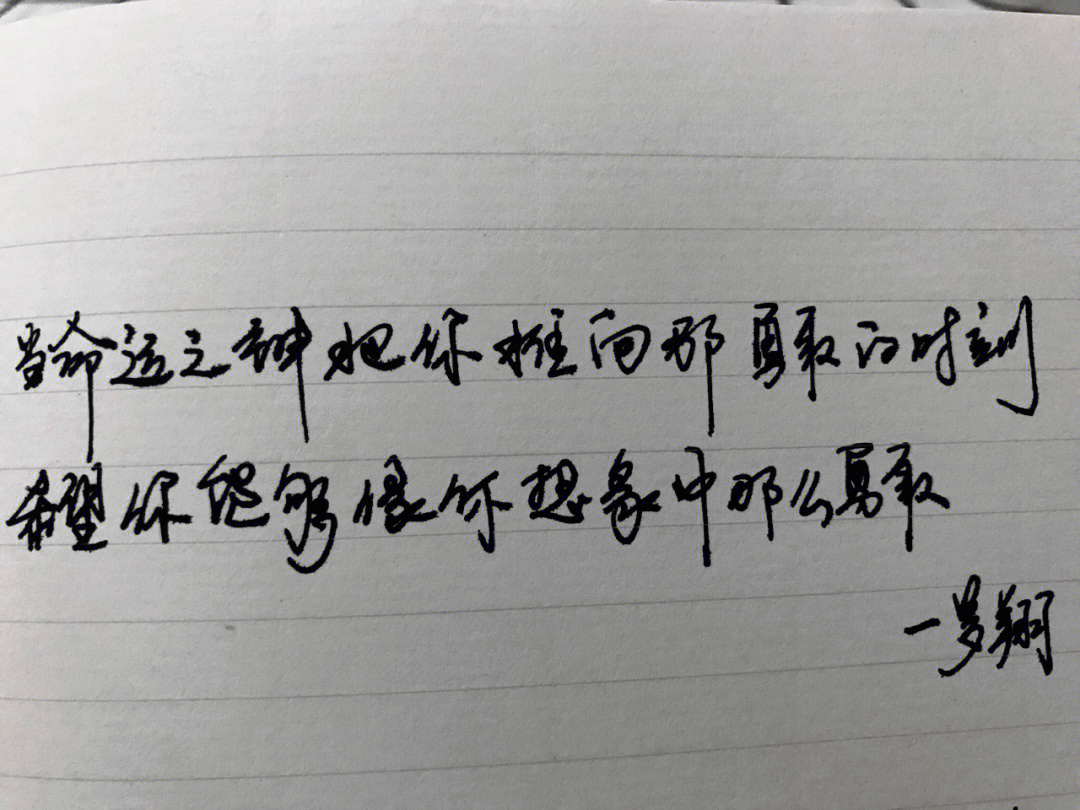 当命运之神把你推向那勇敢的时刻
希望你能够像你想象中那么勇敢
—罗翔